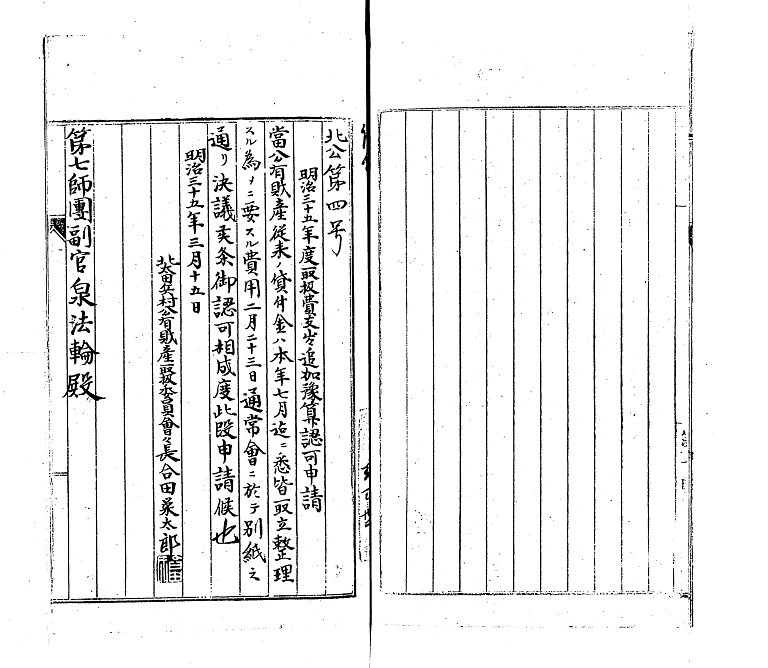 北公第四号
明治三十五年度取扱費支出追加豫算認可申請
當公有財産従来ノ貸付金ハ本年七月迄ニ悉皆取立整理
スル為メニ要スル費用二月二十三日通常會ニ於テ別紙之
通リ決議致候条御認可相成度此段申請候也
明治三十五年三月十五日
北太田兵村公有財産取扱委員會々長合田栄太郎
第七師團副官泉法輪殿